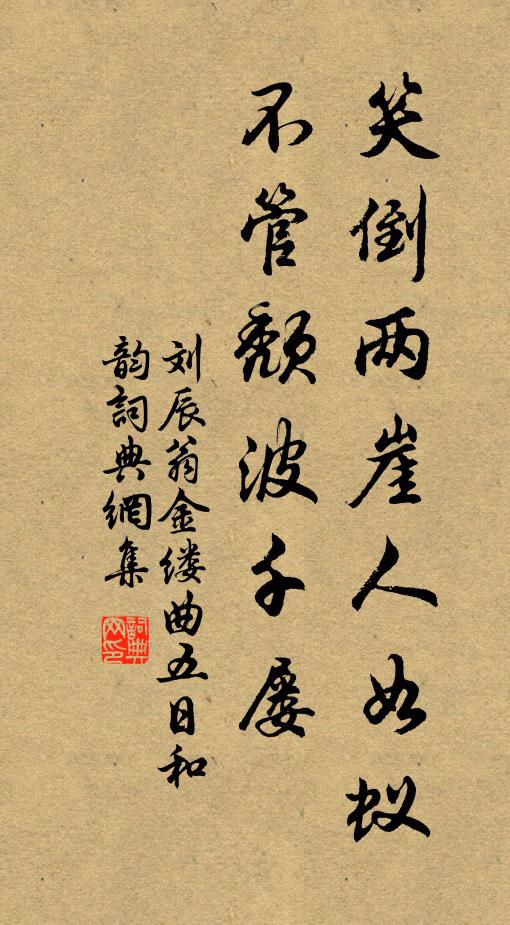 笑倒两崖人如蚁
不管颓波千屡
刘辰翁金缕曲五日和
韵词典網集
詞典
网印